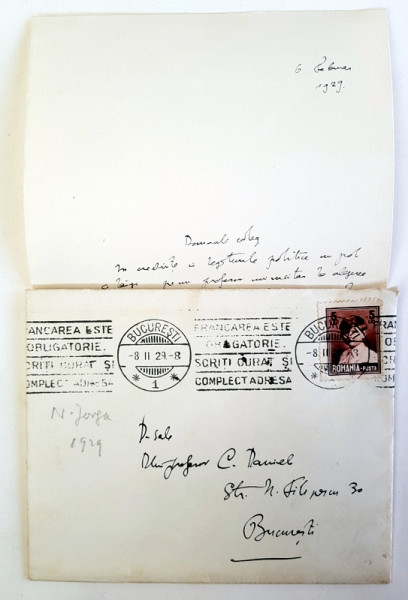 6 Februar
1929.
Domnule coleg
În credința a legăturile politice nu pot
a lega pe un profesor universitar la alegerea
FRANCAREA ESTE
OBLIGATORIE.
SCRIȚI CURAT ȘI
COMPLECT ADRESA
BUCUREȘTI
-8 II 29.-8
* 1 *
FRANCAREA ESTE
OBLIGATORIE.
SCRIȚI CURAT ȘI
COMPLECT ADRESA
BUCUREȘTI
-8 II
5 5
ROMANIA-POSTA
N. Iorga
1929
D-sale
Dlui profesor C. Daniel
Str. N. Filipescu 30
București